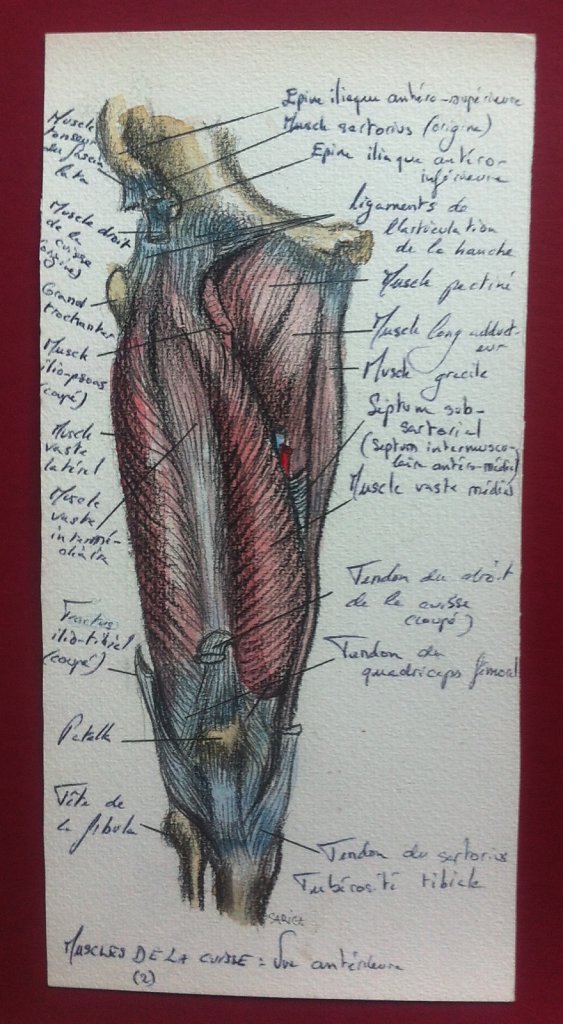 Muscle
tenseur
du fascia
lata
Muscle droit
de la
cuisse
(origine)
Grand
trochanter
Muscle
ilio-psoas
(coupé)
Muscle
vaste
latéral
Muscle
vaste
intermé-
diaire
Tractus
ilio-tibial
(coupé)
Patella
Tête de
la fibula
Epine iliaque antéro-supérieure
Muscle sartorius (origine)
Epine iliaque antéro-
inférieure
Ligaments de
l'articulation
de la hanche
Muscle pectiné
Muscle long adduct-
eur
Muscle gracile
Septum sub-
sartorial
(Septum intermuscu-
laire antéro-médial)
Muscle vaste médial
Tendon du droit
de la cuisse
(coupé)
Tendon du
quadriceps fémoral
Tendon du sartorius
Tubérosité tibiale
SARICA
MUSCLES DE LA CUISSE : Vue antérieure
(2)